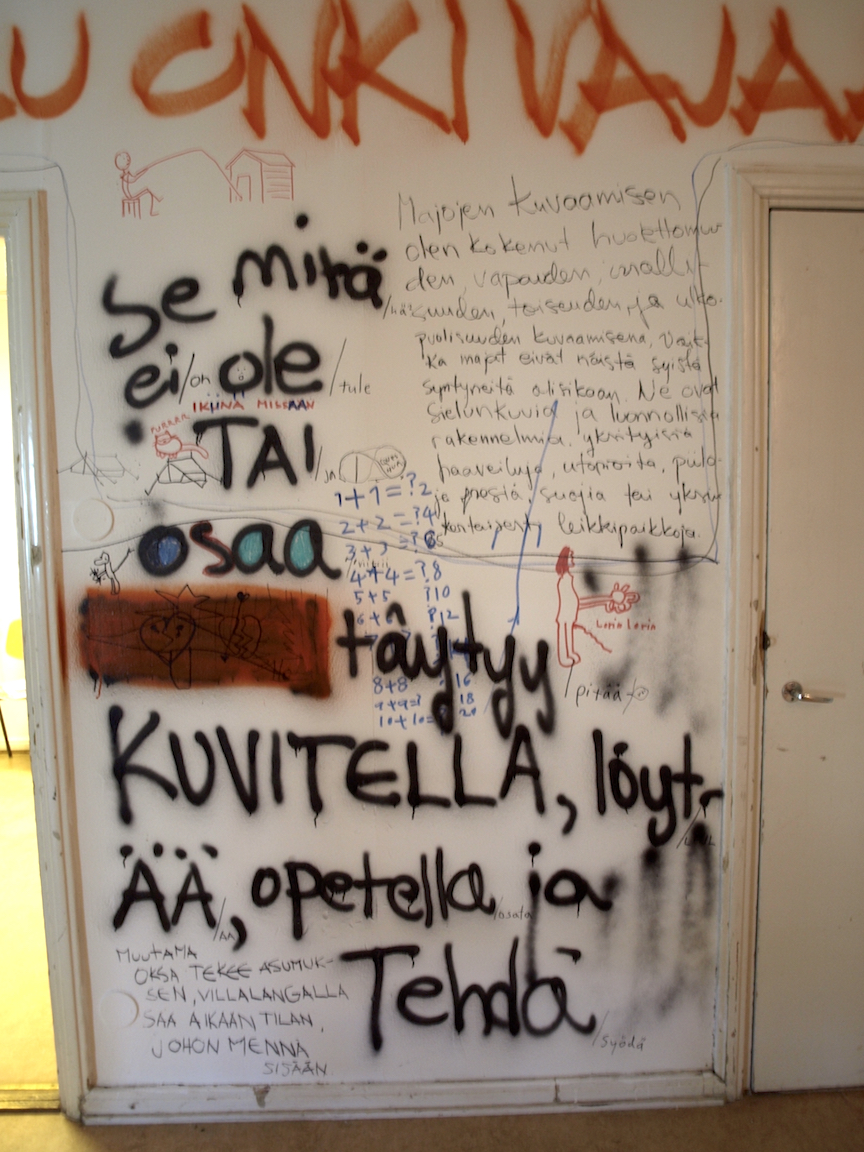 LUONKIVAJA
Majojen kuvaamisen
olen kokenut huolettomuu-
den, vapauden, 
suuden, toiseuden, ja ulko-
puolisuuden kuvaamisena, Vaik-
ka majat eivät näistä syistä
syntyneitä olisikaan. Ne ovat
sielunkuvia ja luonnollisia
rakennelmia, yksityisiä
haaveiluja, utopioita,
suojia tai
leikkipaikkoja.
se mitä
ei /on ole /tule
IKUNA MISSÄÄN
TAI /JA
osaa
1+1=?2
2+2=?4
3+3=?6
4+4=?8
5+5 ?10
6+6 ?12
täytyy
8+8 16
9+9=? 18
10+10=? 20
/pitää
KUVITELLA, löyt-
ÄÄ, opetella /osata ja
/ÄÄ
Tehdä
/syödä
MUUTAMA
OKSA TEKEE ASUMUK-
SEN, VILLALANGALLA
SAA AIKAAN TILAN,
JOHON MENNÄ
SISÄÄN